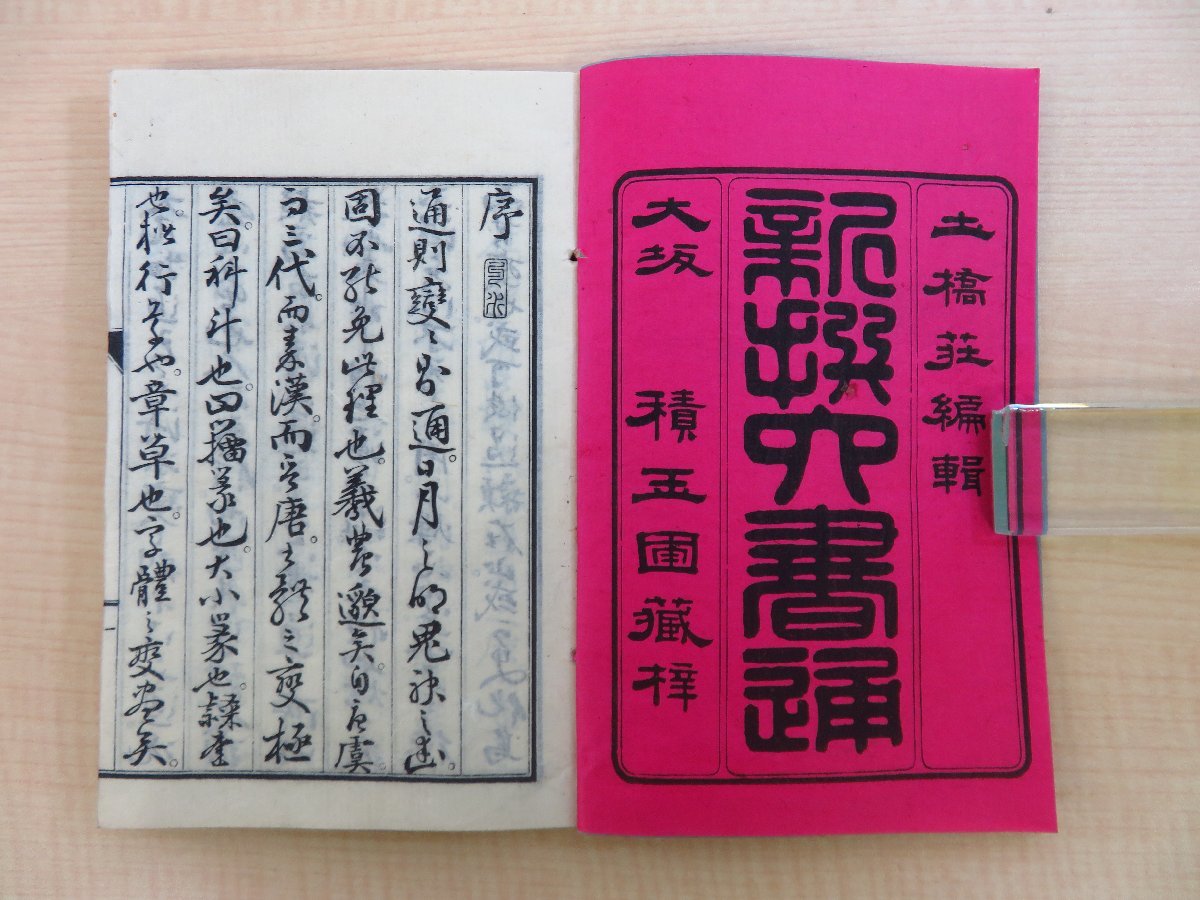 土橋荘編輯
新撰六書通
大坂　積玉圃藏梓
序
通則變〻則通。日月之明鬼神之幽。
固不能免此理也。羲農邈矣。自唐虞。
而三代。而秦漢。而至唐。體之變極
矣。曰科斗也。曰籀篆也。大小篆也。隸
也。楷行草也。章草也。字體之變盡矣。